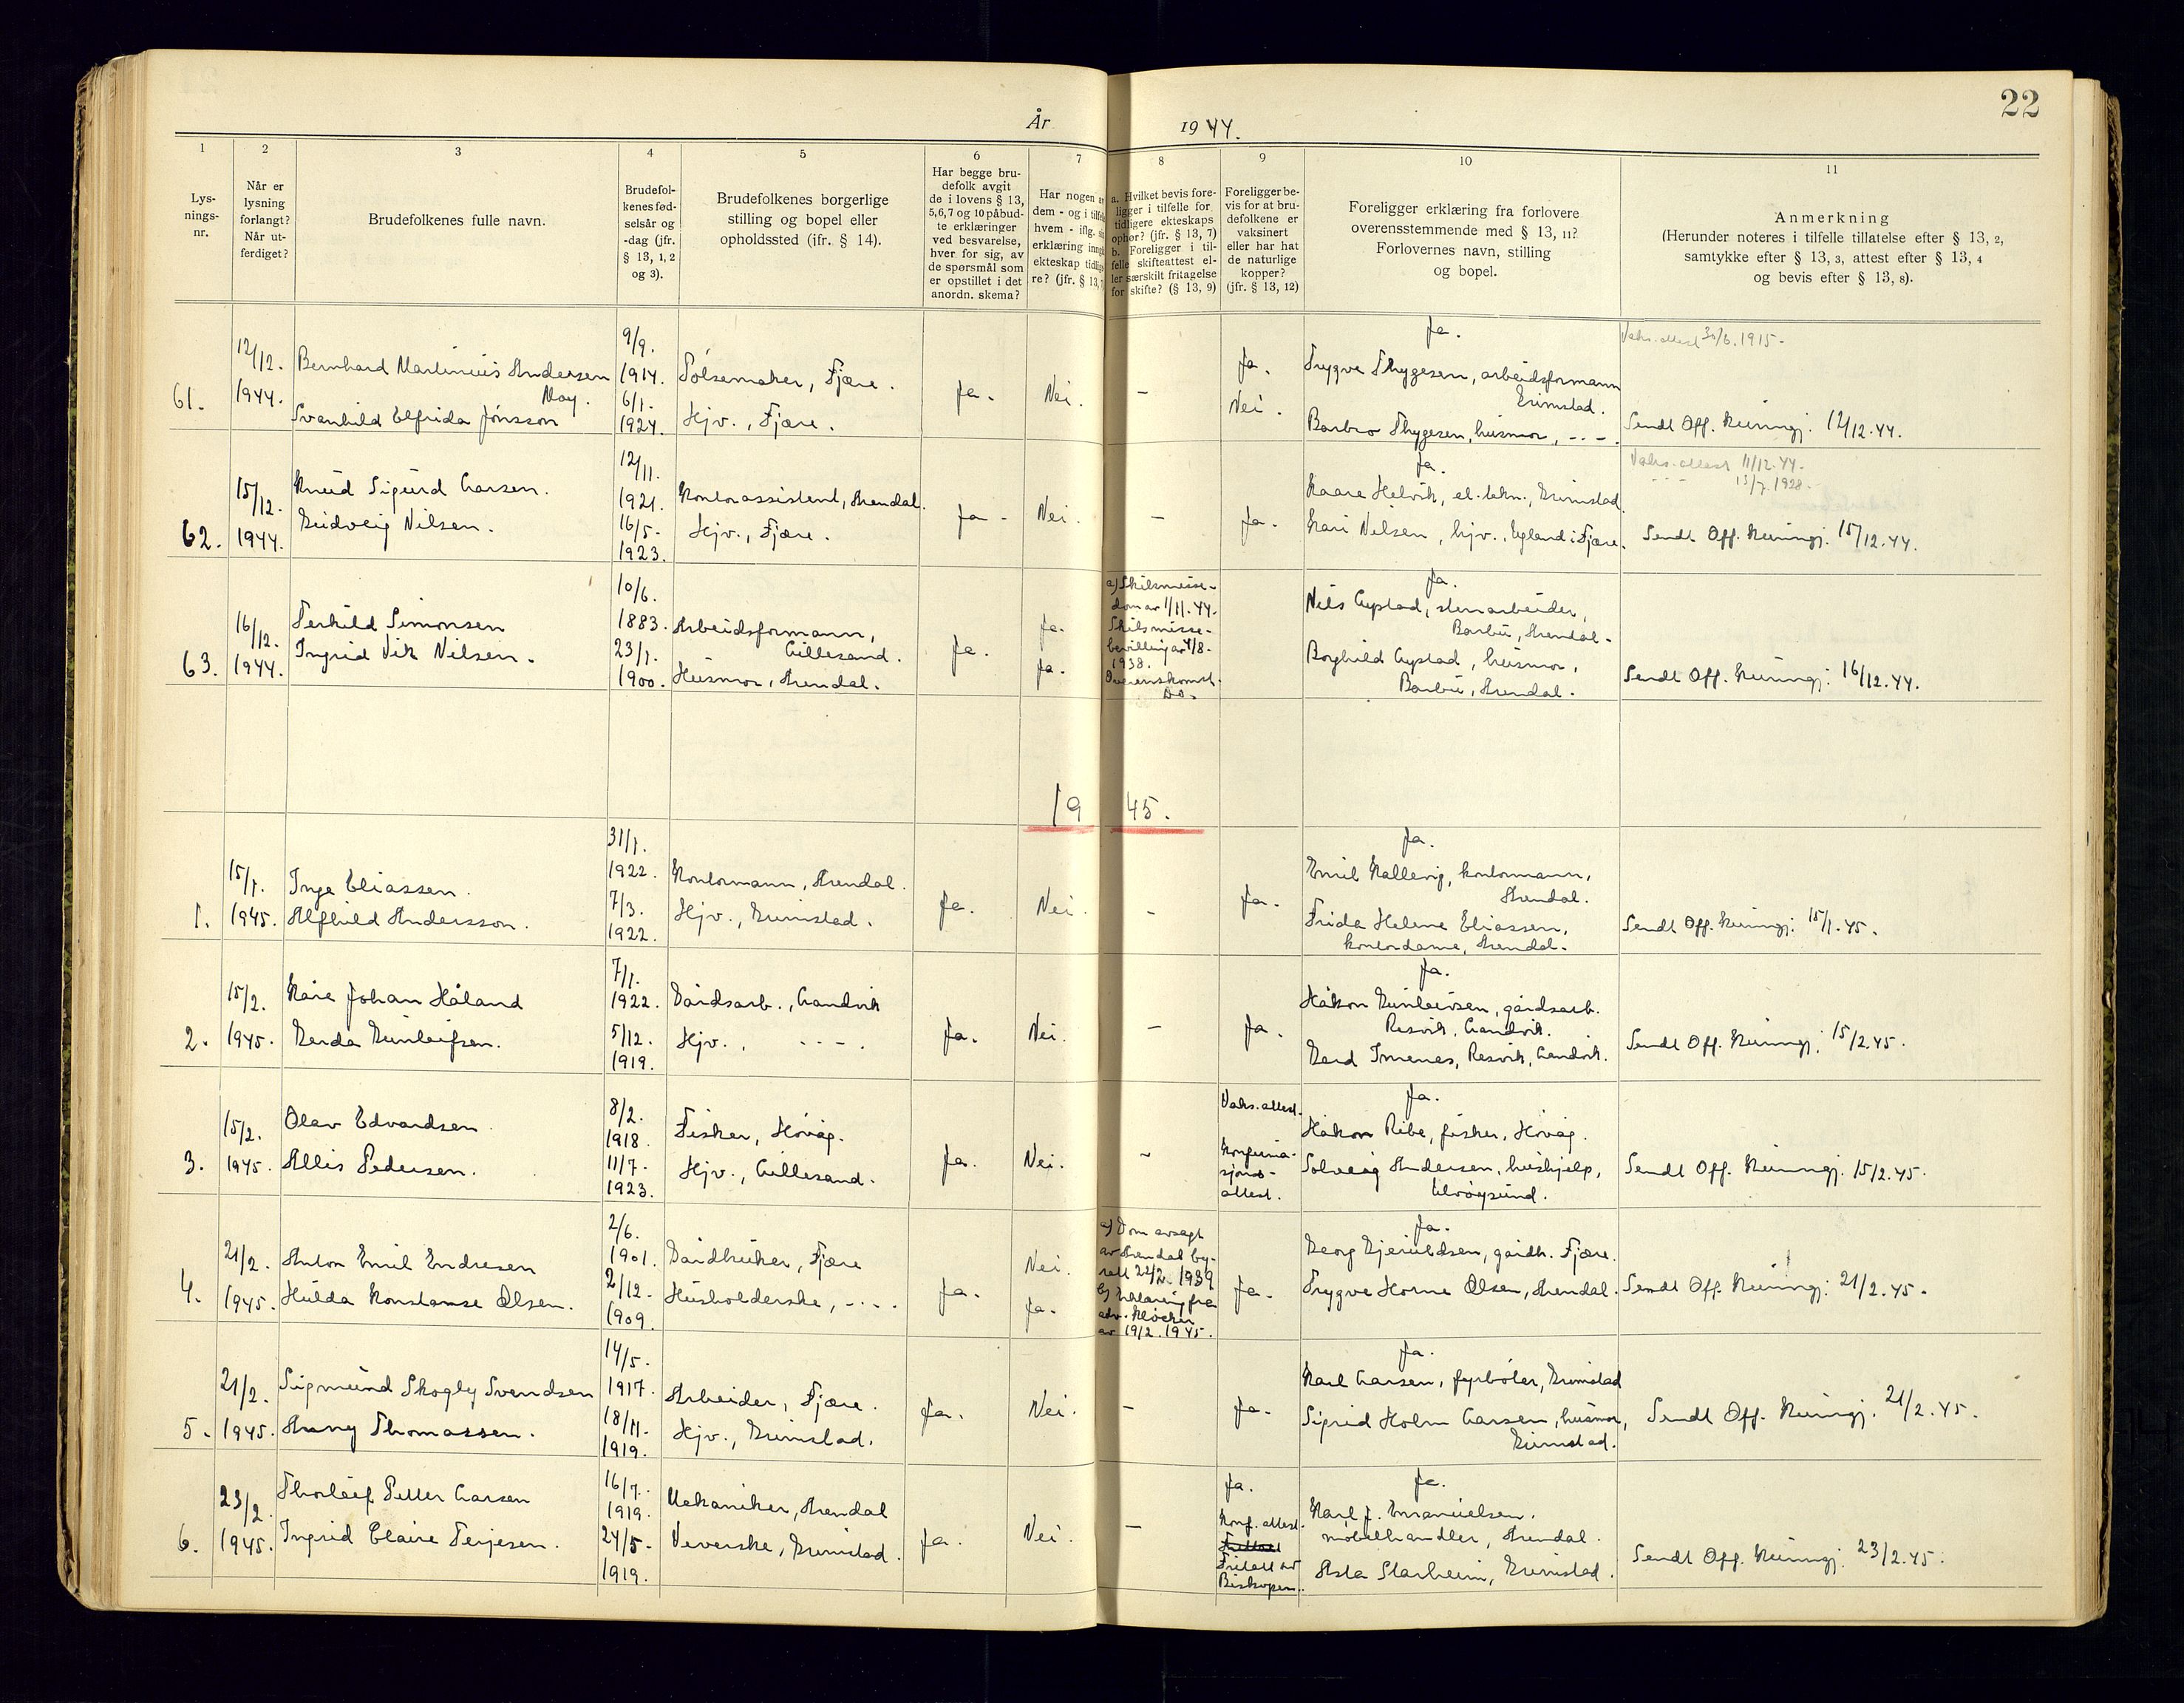 22
År 1944.
1
2
3
4
5
6
7
8
9
10
11
Lys-
nings-
nr.
Når er
lysning
forlangt?
Når ut-
ferdiget?
Brudefolkenes fulle navn.
Brudefol-
kenes fød-
selsår og
-dag (jfr.
§ 13, 1, 2
og 3).
Brudefolkenes borgerlige
stilling og bopel eller
opholdssted (jfr. § 14).
Har begge bru-
defolk avgit
de i lovens § 13,
5,6,7 og 10 påbud-
te erklæringer
ved besvarelse,
hver for sig, av
de spørsmål som
er opstillet i det
anordn. skema?
Har nogen a
dem - og i tilfelle
hvem - iflg. sin
erklæring inngå
ekteskap tidlige
re? (jfr. § 13, 7
a. Hvilket bevis fore-
ligger i tilfelle for
tidligere ekteskaps
ophør? (jfr. § 13, 7)
b. Foreligger i til-
felle skifteattest el-
ler særskilt fritagelse
for skifte? (§ 13, 9)
Foreligger be-
vis for at bru-
defolkene er
vaksinert
eller har hat
de naturlige
kopper?
(jfr. § 13, 12)
Foreligger erklæring fra forlovere
overensstemmende med § 13, 11?
Forlovernes navn, stilling
og bopel.
Anmerkning
(Herunder noteres i tilfelle tillatelse efter § 13, 2,
samtykke efter § 13, 3, attest efter § 13, 4
og bevis efter § 13, 8).
61.
12/12.
1944.
Bernhard Martinius Andersen
Moy.
Svanhild Elfrida Jónsson
9/9.
1914.
6/1.
1924.
Pølsemaker, Fjære.
Hjv., Fjære.
Ja.
Nei.
-
Ja.
Nei.
Ja.
Trygve Thygesen, arbeidsformann
Grimstad.
Barbro Thygesen, husmor, - - -.
Vaks. attest 30/6. 1915.
Sendt Off. Kunngj. 12/12.44.
62.
15/12.
1944.
Knud Sigurd Larsen.
Gudveig Nilsen.
12/11.
1921.
16/5.
1923.
Kontorassistent, Arendal.
Hjv., Fjære.
Ja.
Nei.
-
Ja.
Ja.
Kaare Helvik, el. tekn., Grimstad
Kari Nilsen, hjv., Egland i Fjære.
Vaks. attest 11/12.44.
- - - 13/7.1928.
Sendt Off. Kunngj. 15/12.44.
63.
16/12.
1944.
Terkild Simonsen
Ingrid Vik Nilsen.
10/6.
1883.
23/1.
1900.
Arbeidsformann,
Lillesand.
Husmor, Arendal.
Ja.
Ja.
Ja.
a) Skilsmisse-
dom av 1/11.44.
Skilsmisse-
bevilling av 4/8-
1938.
Overenskomst.
Do.
Ja.
Nils Lystad, stenarbeider,
Barbu, Arendal.
Borghild Lystad, husmor,
Barbu, Arendal.
Sendt Off. Kunngj. 16/12.44.
1945.
1.
15/1.
1945.
Inge Eliassen.
Alfhild Andersson.
31/1.
1922.
7/3.
1922.
Kontormann, Arendal.
Hjv., Grimstad.
Ja.
Nei.
-
Ja.
Ja.
Emil Kallevig, kontormann,
Arendal.
Frida Helene Eliassen,
kontordame, Arendal.
Sendt Off. Kunngj. 15/1.45.
2.
15/2.
1945.
Kåre Johan Håland
Gerda Gunleifsen.
7/1.
1922.
5/12.
1919.
Gårdsarb., Landvik
Hjv., - - -.
Ja.
Nei.
-
Ja.
Ja.
Håkon Gunleivsen, gårdsarb.
Resvik, Landvik.
Gerd Imenes, Resvik, Landvik.
Sendt Off. Kunngj. 15/2.45.
3.
15/2.
1945.
Olav Edvardsen.
Allis Pedersen.
8/2.
1918.
11/7.
1923.
Fisker, Høvåg.
Hjv., Lillesand.
Ja.
Nei.
-
Vaks. attest.
Konfirma-
sjons-
attest.
Ja.
Håkon Ribe, fisker, Høvåg.
Solveig Andersen, hushjelp,
Ulvøysund.
Sendt Off. Kunngj. 15/2.45.
4.
21/2.
1945.
Anton Emil Endresen
Hulda Konstanse Olsen.
2/6.
1901.
2/12.
1909.
Gårdbruker, Fjære
Husholderske, - - -.
Ja.
Nei.
Ja.
a) Dom avsagt
av Arendal by-
rett 22/2. 1939
b) Erklæring fra
adv. Kløcker
av 19/2.1945.
Ja.
Ja.
Georg Gjeruldsen, gårdb. Fjære.
Trygve Horne Olsen, Arendal.
Sendt Off. Kunngj. 21/2.45.
5.
21/2.
1945.
Sigmund Skogly Svendsen
Anny Thomassen.
14/5.
1917.
18/11.
1919.
Arbeider, Fjære.
Hjv., Grimstad.
Ja.
Nei.
-
Ja.
Ja.
Karl Larsen, fyrbøter, Grimstad
Sigrid Holm Larsen, husmor,
Grimstad.
Sendt Off. Kunngj. 21/2.45.
6.
23/2.
1945.
Thorleif Petter Larsen
Ingrid Claire Terjesen.
16/7.
1919.
24/5.
1919.
Mekaniker, Arendal
Veverske, Grimstad.
Ja.
Nei.
-
Ja.
Konf. attest.
Fritatt av
Biskopen.
Ja.
Karl J. Emanuelsen.
møbelhandler, Arendal.
Asta Starheim, Grimstad.
Sendt Off. Kunngj. 23/2.45.